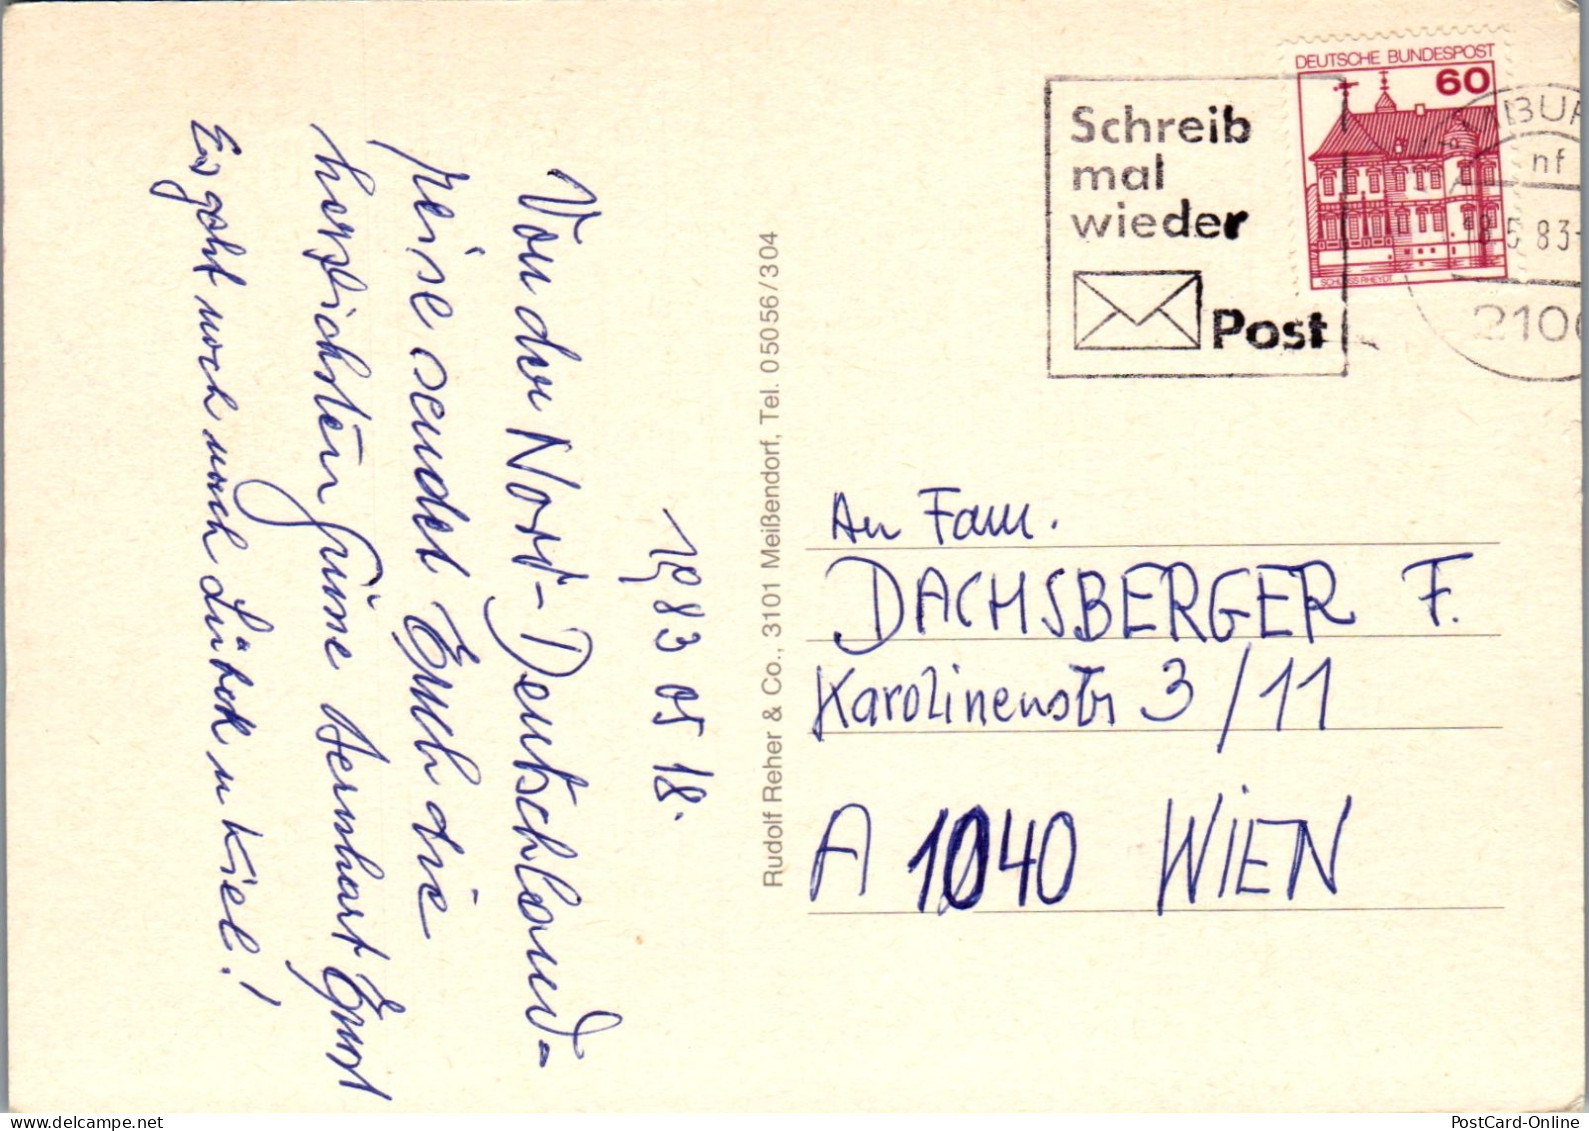 1983 05 18.
Von der Nord-Deutschland-
reise sendet Euch die
herzlichsten Grüsse Bernhart Ernst
Es geht noch nach Lübek u Kiel!
Rudolf Reher & Co., 3101 Meißendorf, Tel. 05056/304
Schreib
mal
wieder
Post
DEUTSCHE BUNDESPOST
60
SCHLOSS RHEYDT
nf
5 83-
2100
An Fam.
DACHSBERGER F.
Karolinenstr 3/11
A 1040 WIEN
PostCard-Online